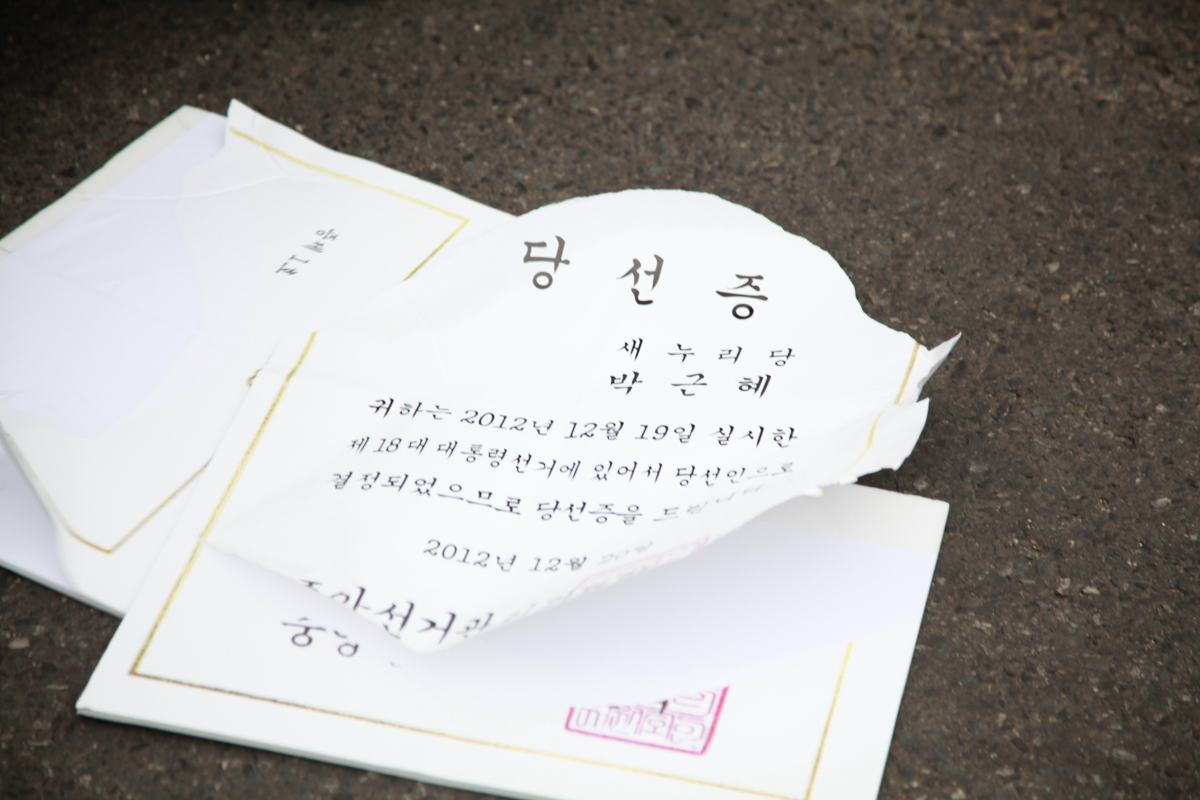 당 선 증
새 누 리 당
박 근 혜
귀하는 2012년 12월 19일 실시한
제18대 대통령선거에 있어서 당선인으로
결정되었으므로 당선증을 드립니다
2012년 12월
선거관